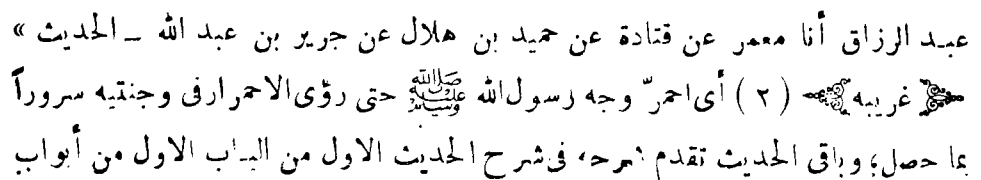 عبد الرزاق أنا معمر عن قتادة عن حميد بن هلال عن جرير بن عبد الله ـ الحديث »
غريبه (٢) أى احمرّ وجه رسول الله ﷺ حتى رؤى الاحمرار فى وجنتيه سروراً
بما حصل؛ وباقى الحديث تقدم شرحه فى شرح الحديث الاول من الباب الاول من أبواب